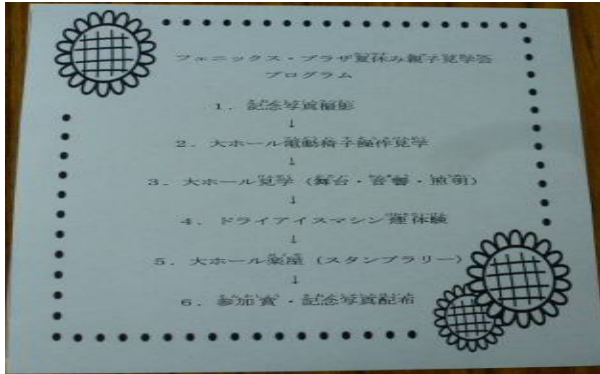 フェニックス・プラザ夏休み親子見学会
プログラム
1. 記念写真撮影
↓
2. 大ホール電動椅子操作見学
↓
3. 大ホール見学(舞台・音響・照明)
↓
4. ドライアイスマシン 体験
↓
5. 大ホール楽屋(スタンプラリー)
↓
6. 参加賞・記念写真配布